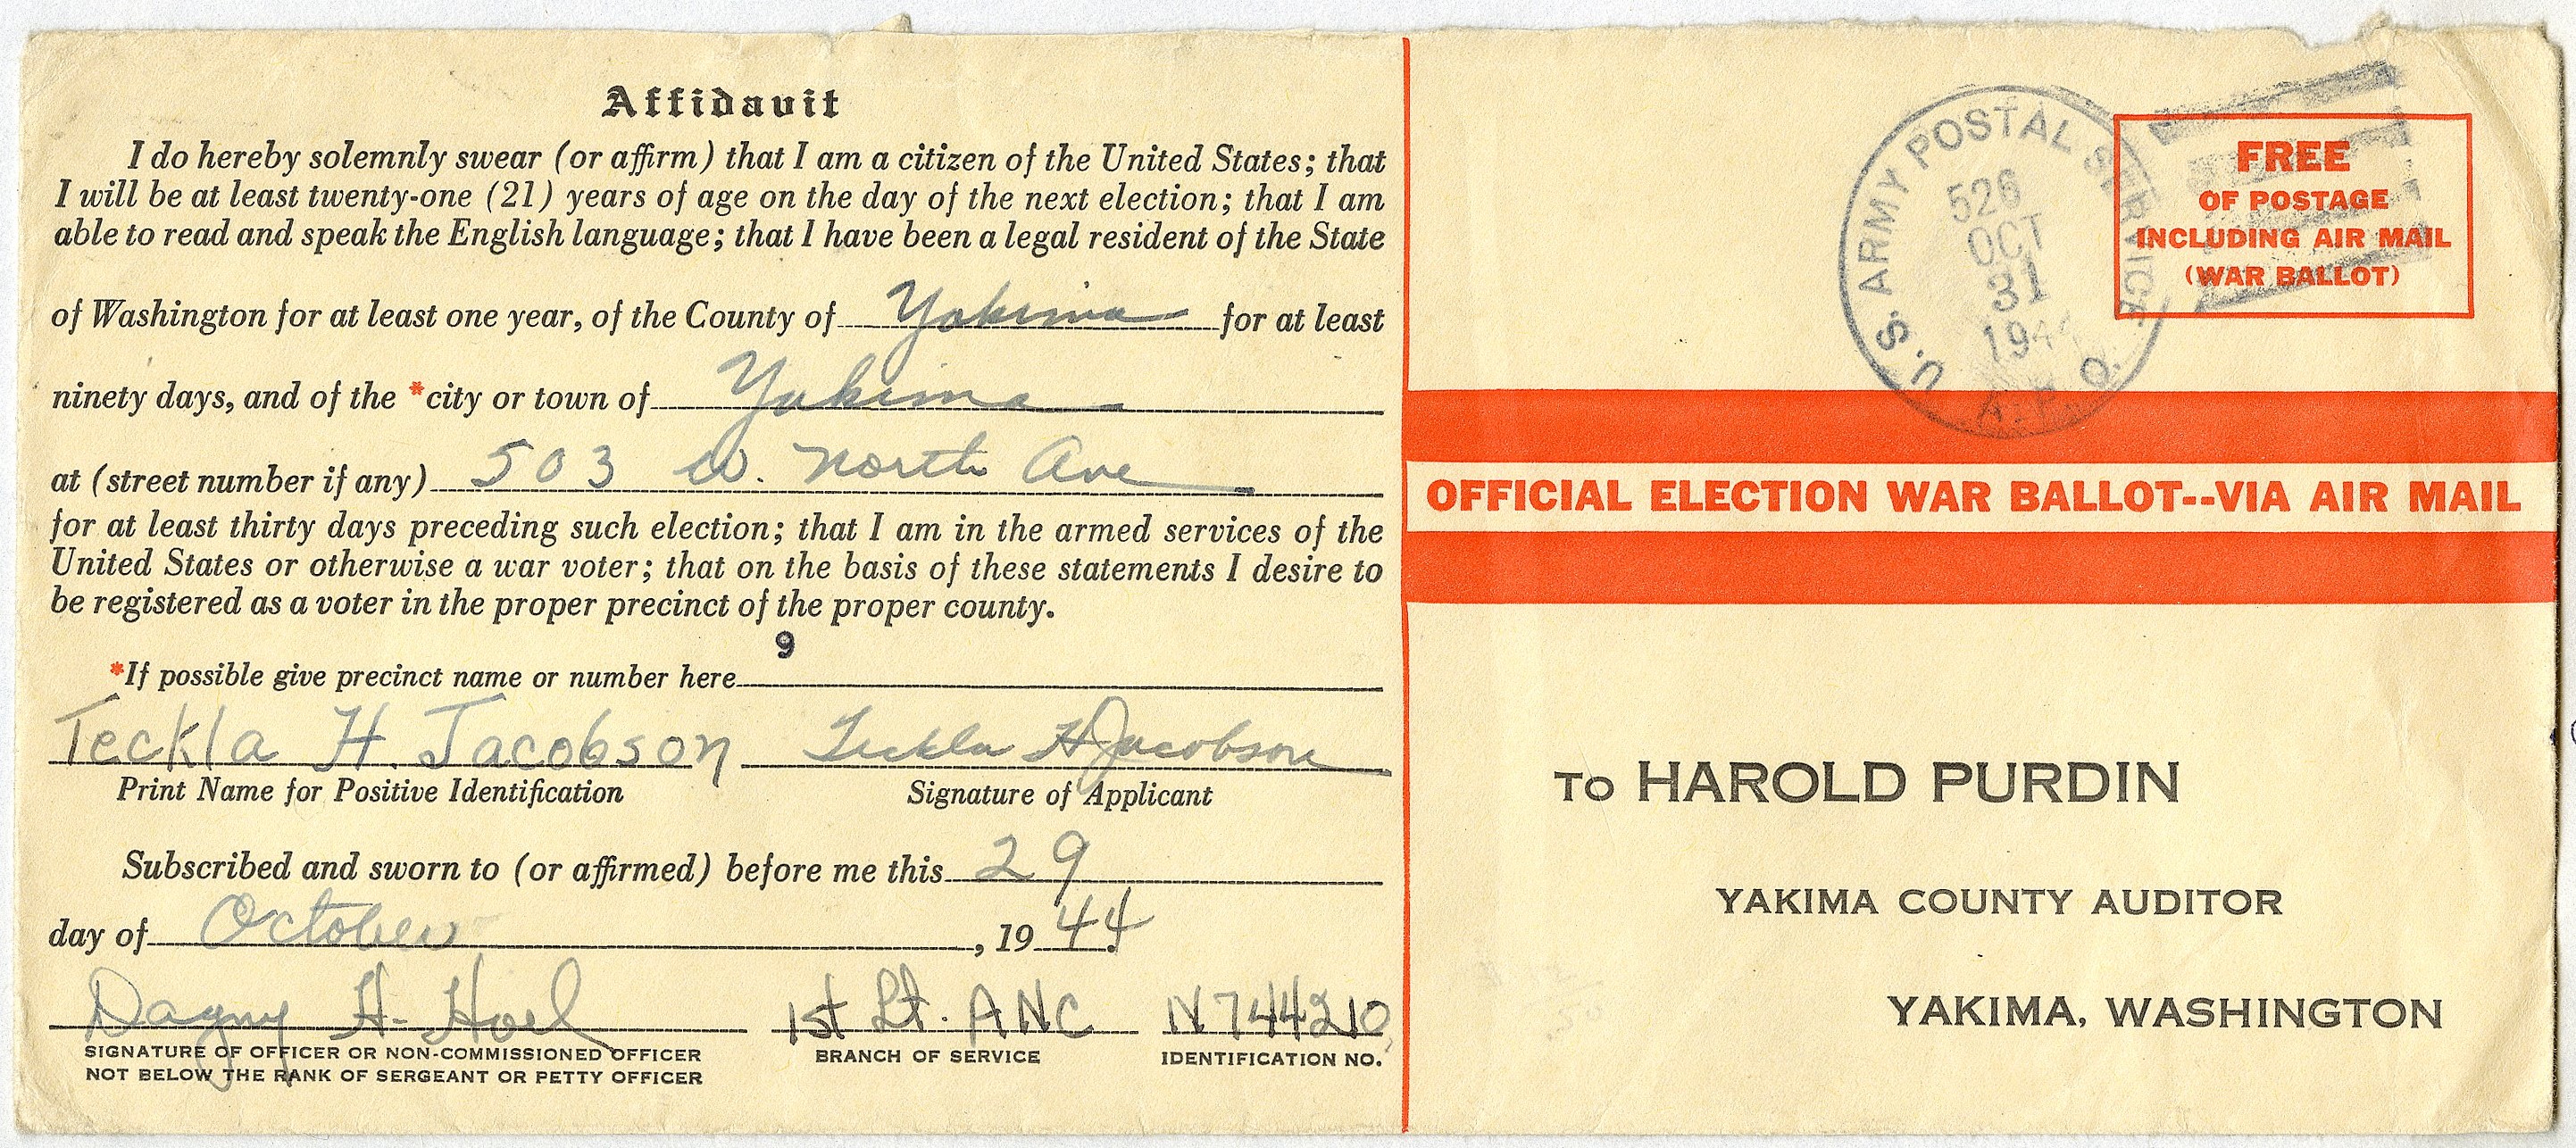 Affidavit
I do hereby solemnly swear (or affirm) that I am a citizen of the United States; that
I will be at least twenty-one (21) years of age on the day of the next election; that I am
able to read and speak the English language; that I have been a legal resident of the State
of Washington for at least one year, of the County of Yakima for at least
ninety days, and of the *city or town of Yakima
at (street number if any) 503 W. North Ave
for at least thirty days preceding such election; that I am in the armed services of the
United States or otherwise a war voter; that on the basis of these statements I desire to
be registered as a voter in the proper precinct of the proper county.
9
*If possible give precinct name or number here
Teckla H. Jacobson Teckla H Jacobson
Print Name for Positive Identification Signature of Applicant
Subscribed and sworn to (or affirmed) before me this 29
day of October, 1944
Dagny H. Hoel 1st Lt. ANC N744210
SIGNATURE OF OFFICER OR NON-COMMISSIONED OFFICER BRANCH OF SERVICE IDENTIFICATION NO.
NOT BELOW THE RANK OF SERGEANT OR PETTY OFFICER
U.S. ARMY POSTAL SERVICE
526
OCT
31
1944
A.P.O.
FREE
OF POSTAGE
INCLUDING AIR MAIL
(WAR BALLOT)
OFFICIAL ELECTION WAR BALLOT--VIA AIR MAIL
TO HAROLD PURDIN
YAKIMA COUNTY AUDITOR
YAKIMA, WASHINGTON